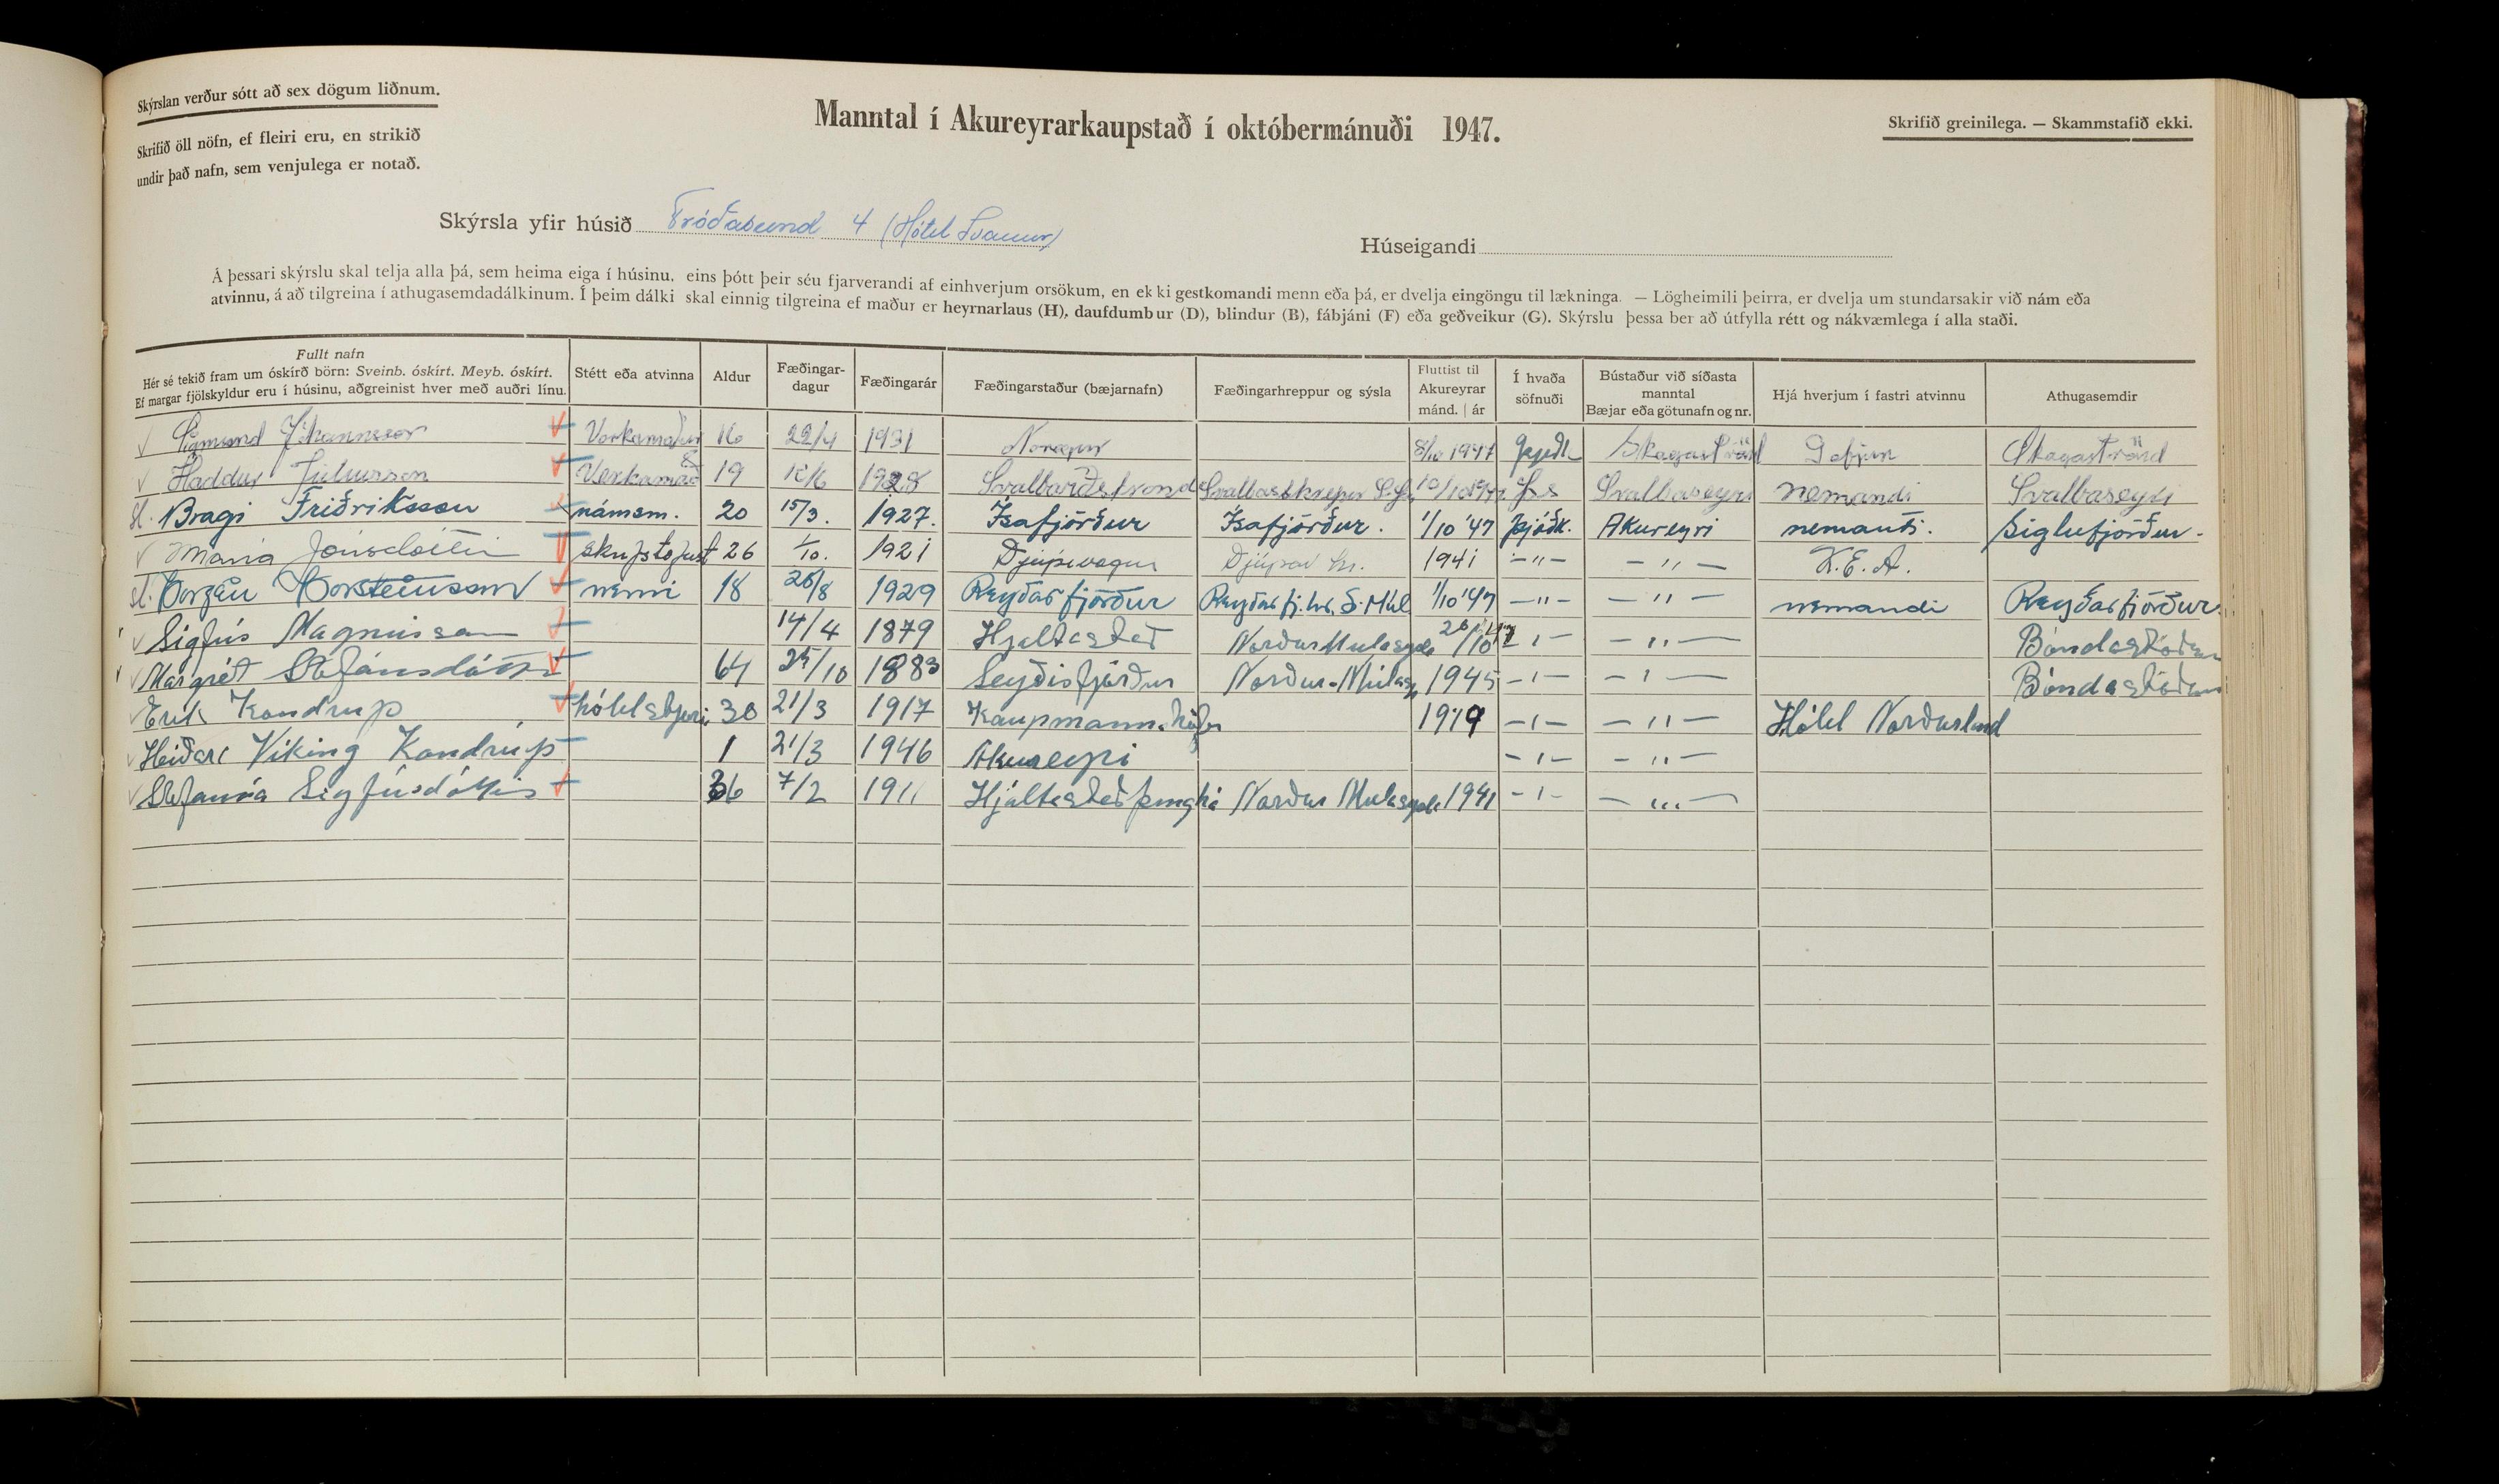 Skýrslan verður sótt að sex dögum liðnum.
Skrifið öll nöfn, ef fleiri eru, en strikið
undir það nafn, sem venjulega er notað.
Manntal í Akureyrarkaupstað í októbermánuði 1947.
Skrifið greinilega. — Skammstafið ekki.
Skýrsla yfir húsið Fróðasund 4 (Hótel Svanur)
Húseigandi
Á þessari skýrslu skal telja alla þá, sem heima eiga í húsinu, eins þótt þeir séu fjarverandi af einhverjum orsökum, en ekki gestkomandi menn eða þá, er dvelja eingöngu til lækninga. — Lögheimili þeirra, er dvelja um stundarsakir við nám eða
atvinnu, á að tilgreina í athugasemdadálkinum. Í þeim dálki skal einnig tilgreina ef maður er heyrnarlaus (H), daufdumbur (D), blindur (B), fábjáni (F) eða geðveikur (G). Skýrslu þessa ber að útfylla rétt og nákvæmlega í alla staði.
Fullt nafn
Hér sé tekið fram um óskírð börn: Sveinb. óskírt. Meyb. óskírt.
Ef margar fjölskyldur eru í húsinu, aðgreinist hver með auðri línu.
Stétt eða atvinna
Aldur
Fæðingar-
dagur
Fæðingarár
Fæðingarstaður (bæjarnafn)
Fæðingarhreppur og sýsla
Fluttist til
Akureyrar
mánd. | ár
Í hvaða
söfnuði
Bústaður við síðasta
manntal
Bæjar eða götunafn og nr.
Hjá hverjum í fastri atvinnu
Athugasemdir
Sigmund Jóhannsson Verkamaður 16 22/4 1931 Noregur 8/10 1947 Skagaströnd Gefjun Skagaströnd
Haddur Júlíusson Verkamað 19 1928 Svalbarðsströnd Svalbaseyri nemandi Svalbaseyri
st. Bragi Friðriksson námsm. 20 15/3. 1927. Ísafjörður Ísafjörður. 1/10 '47 þjóðk. Akureyri nemandi. Siglufjörður.
María Jónsdóttir 26 1/10. 1921 Djúpivogur 1941 —"— —"— K.E.A.
st. Þorgeir Þorsteinsson nemi 18 28/8 1929 Reyðarfjörður Reyðarfj.hr. S-Múl 1/10 '47 —"— —"— nemandi Reyðarfjörður.
Sigfús Magnússon 14/4 1879 Hjaltastað Norður Mulasysla —"—
Margrét Stefánsdóttir 64 1883 Seyðisfjörður Norður-Múlas 1945 —"— —"—
Erik Kondrup 30 21/3 1917 Kaupmannahöfn —"— —"— Hótel Norðurland
Heiðar Víking Kondrup 1 21/3 1946 Akureyri —"— —"—
Stefanía Sigfúsdóttir 36 7/2 1911 Hjaltastaðþinghá Norður Mulasysla 1941 —"— —"—